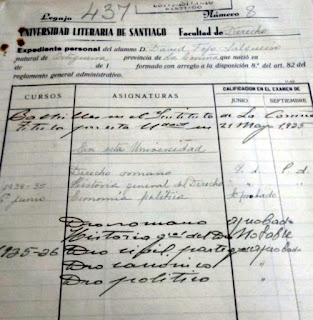 Legajo 437 Número 8
UNIVERSIDAD LITERARIA DE SANTIAGO Facultad de Derecho
Expediente personal del alumno D. Daniel
natural de provincia de La Coruña, que nació en
de de 1 formado con arreglo a la disposición 8.ª del art. 82 del
reglamento general administrativo.
CURSOS ASIGNATURAS CALIFICACIÓN EN EL EXAMEN DE
JUNIO SEPTIEMBRE
Bachiller en el Instituto de La Coruña
Título por esta en 21 Mayo 1935
En esta Universidad
Derecho romano
1934-35 Historia general del Derecho
Economía política
Dro romano aprobado
Historia gral del Dro Notable
1935-36 Dro civil, parte gral aprobado
Dro canónico "
Dro político "